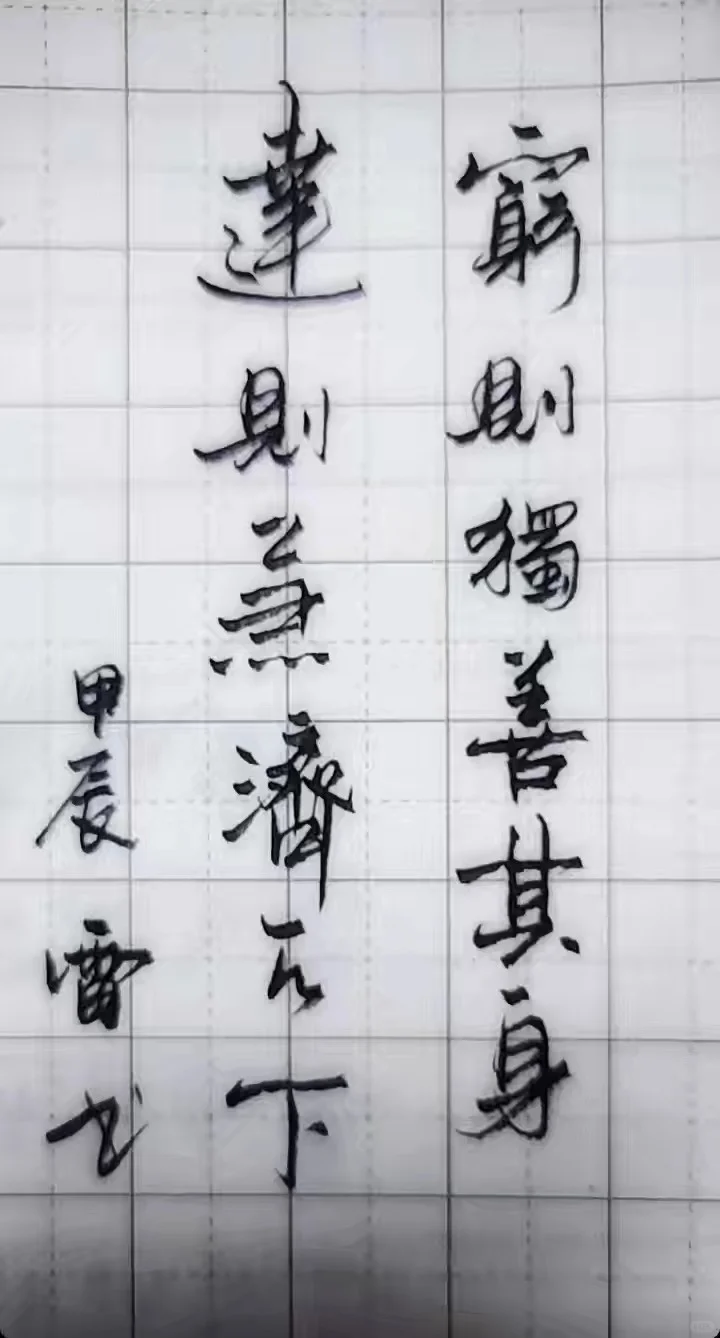 窮則獨善其身
達則兼濟天下
甲辰雷书